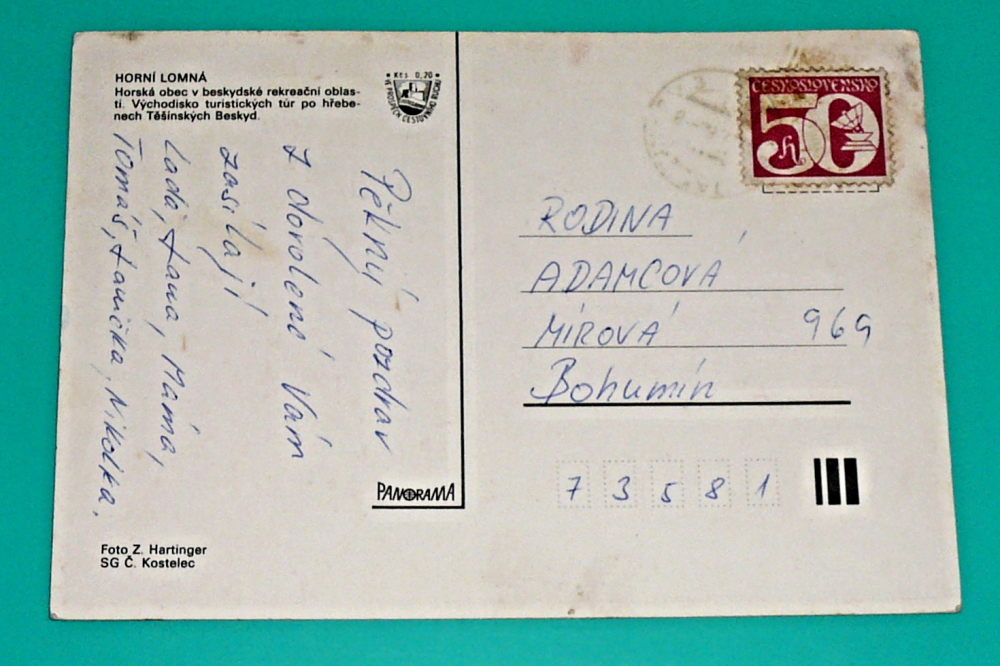 HORNÍ LOMNÁ
Horská obec v beskydské rekreační oblas-
ti. Východisko turistických túr po hřebe-
nech Těšínských Beskyd.
Kčs 0,20
Pěkný pozdrav
z dovolené Vám
zasílají
Lada, Jana, Mamá,
Tomáš, Janička, Nikolka.
PANORAMA
Foto Z. Hartinger
SG Č. Kostelec
ČESKOSLOVENSKO
50 h
RODINA
ADAMCOVÁ
MÍROVÁ 969
Bohumín
7 3 5 8 1